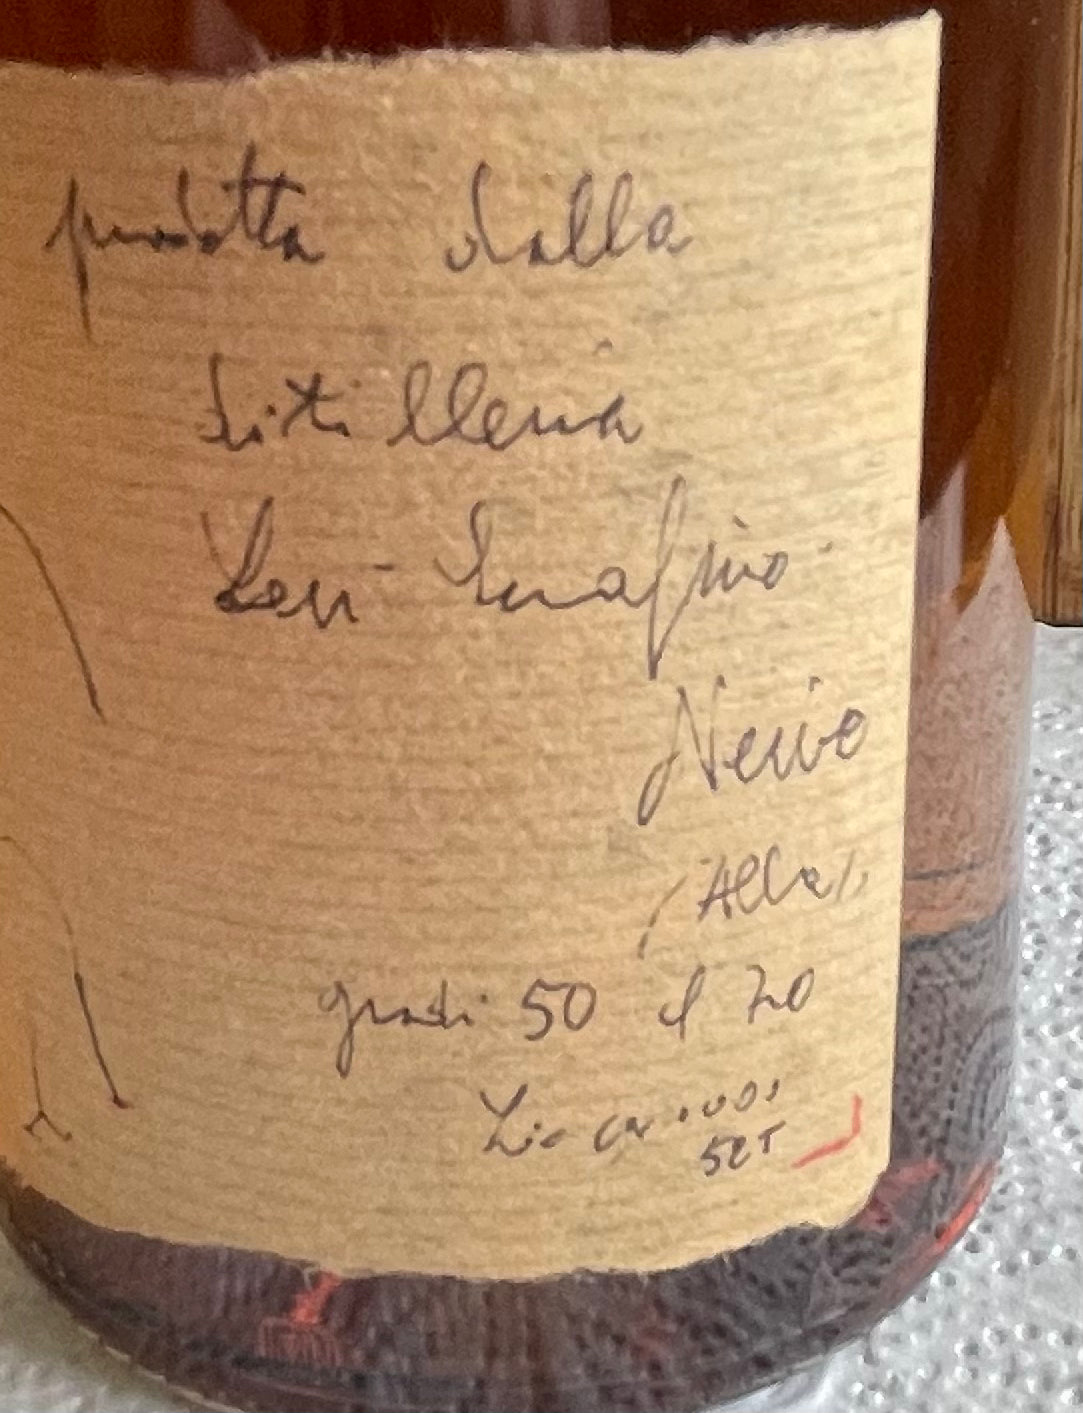 prodotta dalla
distilleria
Levi Serafino
Neive
(Alba)
gradi 50 cl 70
Lic